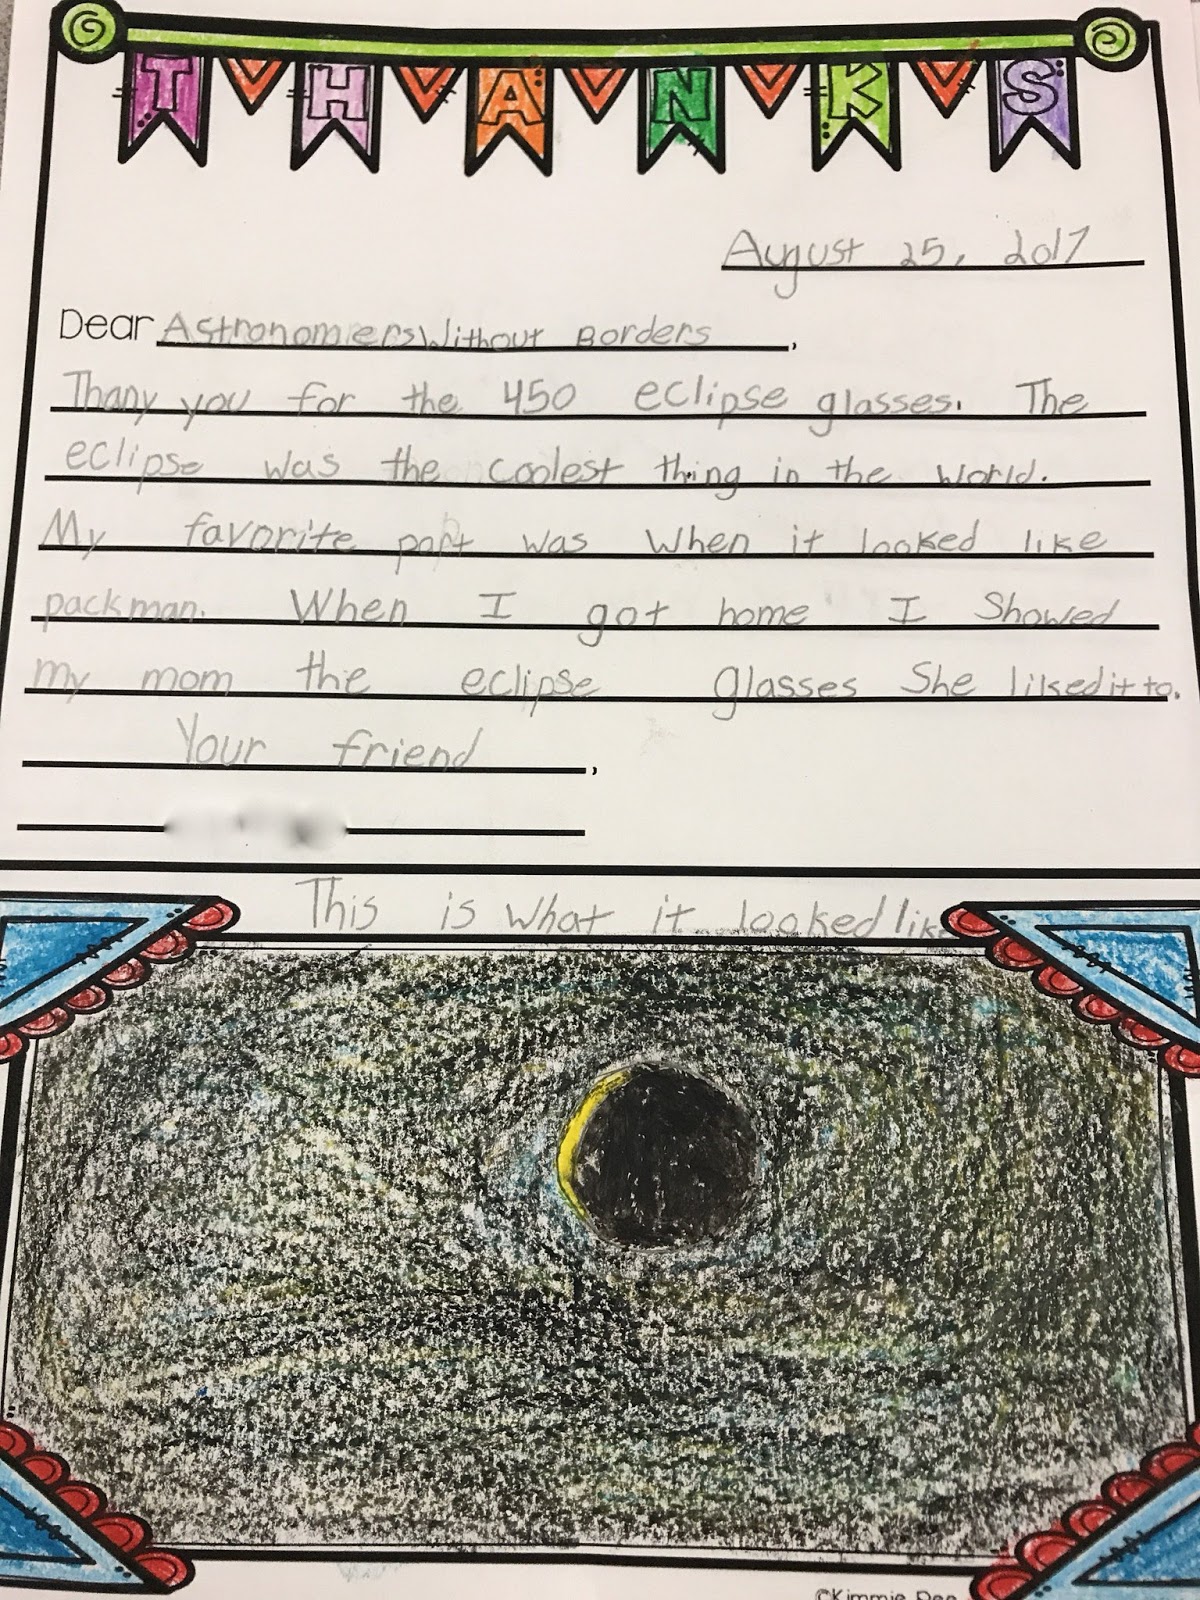 THANKS
August 25, 2017
Dear Astronomers Without Borders,
Thany you for the 450 eclipse glasses. The
eclipse was the coolest thing in the world.
My favorite part was when it looked like
packman. When I got home I showed
my mom the eclipse glasses She liked it to.
Your friend,
This is what it looked like
©Kimmie Dee